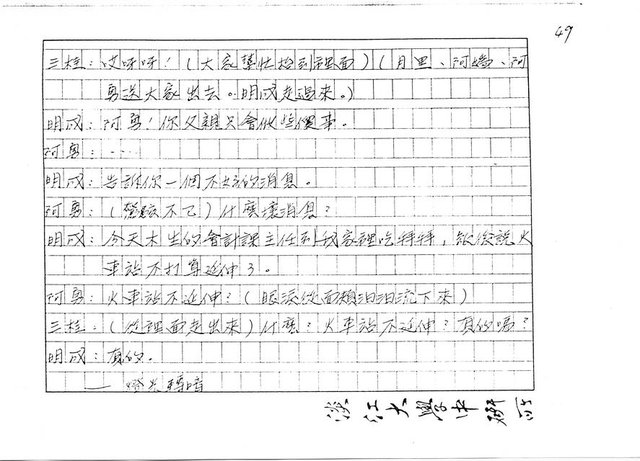 49
三桂：哎呀呀！（大家幫忙抬到裡面）（月里、阿嬌、阿
勇送大家出去。明成走過來。）
明成：阿勇！你父親只會做些傻事。
阿勇：……
明成：告訴你一個不好的消息。
阿勇：（驚駭不已）什麼壞消息？
明成：今天木生的會計課主任到我家裡吃拜拜，飯後說火
車站不打算延伸了。
阿勇：火車站不延伸？（眼淚從面頰汨汨流下來）
三桂：（從裡面走出來）什麼？火車站不延伸？真的嗎？
明成：真的。
——燈光轉暗
淡江大學中研所